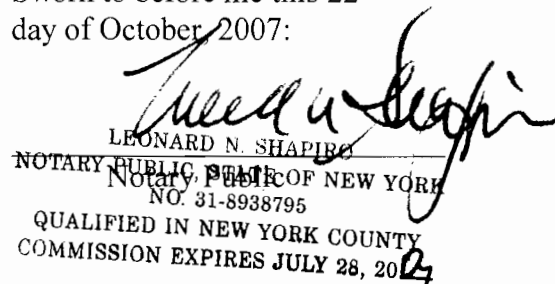 Sworn to before me this 22
day of October, 2007:
LEONARD N. SHAPIRO
NOTARY PUBLIC, STATE OF NEW YORK
Notary Public
NO. 31-8938795
QUALIFIED IN NEW YORK COUNTY
COMMISSION EXPIRES JULY 28, 20